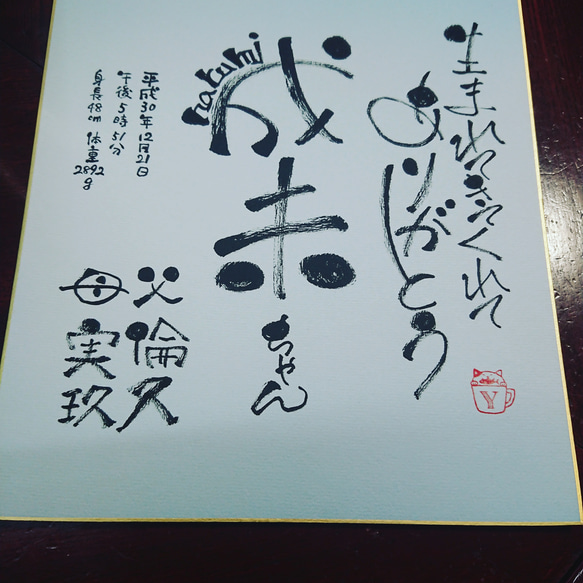 生まれてきてくれて
ありがとう
成未
ちゃん
narumi
平成30年12月21日
午後5時51分
身長48cm 体重2892g
父 倫久
母 実玖
Y